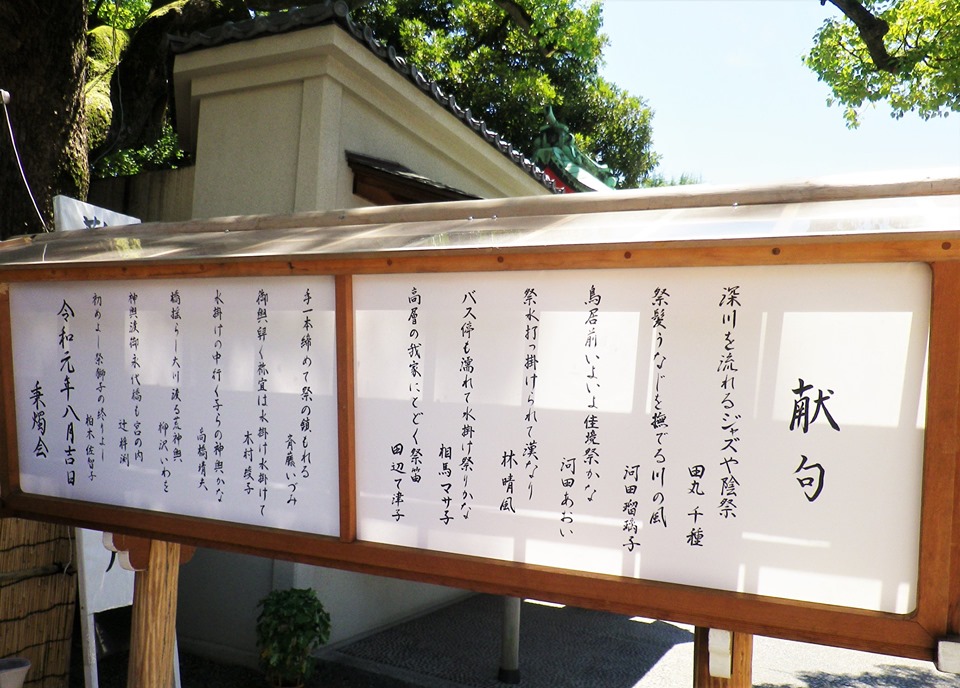 献句
深川を流れるジャズや陰祭
田丸千種
祭髪うなじを撫でる川の風
河田瑠璃子
鳥居前いよいよ佳境祭かな
河田あおい
祭水打っ掛けられて漢なり
林晴風
バス停も濡れて水掛け祭りかな
相馬マサ子
高層の我家にとどく祭笛
田辺て津子
手一本締めて祭の鎮もれる
斉藤いつみ
御輿舁く祢宜は水掛け水掛けて
木村
水掛けの中行く子らの神輿かな
高橋靖夫
橋揺らし大川渡る荒神輿
柳沢いわを
神輿渡御永代橋も宮の内
辻梓渕
初めよし祭獅子の終りよし
柏木佐智子
令和元年八月吉日
乗燭会